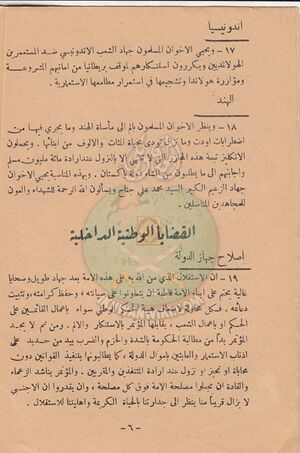 اندونيسيا
١٧ – ويحيي الاخوان المسلمون جهاد الشعب الاندونيسي ضد المستعمرين
الهولانديين ويكررون استنكارهم لموقف بريطانيا من امانيهم المشروعة
ومؤازرة هولاندا وتشجيعها في استمرار مطامعها الاستعمارية .
الهند
١٨ – وينظر الاخوان المسلمون بالم الى مأساة الهند وما يجري فيها من
اضطرابات اودت وما تزال تودي بحياة المئات والالوف من ابنائها . ويحملون
الانكليز تبعة هذه المجازر التي لا تنتهي الا بالنزول عند ارادة مائة مليون مسلم
واجابتهم الى ما يطلبون من انشاء باكستان . وبهذه المناسبة يحيي الاخوان
جهاد الزعيم الكبير السيد محمد علي جناح ويسألون الله الرحمة للشهداء والعون
للمجاهدين المناضلين .
القضايا الوطنية الداخلية
اصلاح جهاز الدولة
١٩ – ان الاستقلال الذي من الله به على هذه الامة بعد جهاد طويل وضحايا
غالية يحتم على ابناء الامة قاطبة ان يتعاونوا على صيانته ، وحفظ كرامته ، وتثبيت
دعائمه . فكل محاولة لاضعاف هيبة الحكم الوطني سواء باعمال القائمين على
الحكم او باعمال الشعب ، يقابلها المؤتمر بالاستنكار والالم . ومن ثم لا يجد
المؤتمر بداً من مطالبة الحكومة بالشدة والحزم والضرب بيد من حديد على
اذناب الاستعمار والعابثين باموال الدولة ، كما يطالبونها بتنفيذ القوانين دون
محاباة او تحيز او نزول عند ارادة المتنفذين والمقربين . والمؤتمر يناشد الزعماء
والقادة ان يجعلوا مصلحة الامة فوق كل مصلحة ، وان يقدروا ان الاجنبي
لا يزال قريباً منا ينظر الى جدارتنا بالحياة الكريمة واهليتنا للاستقلال .
– ٦ –